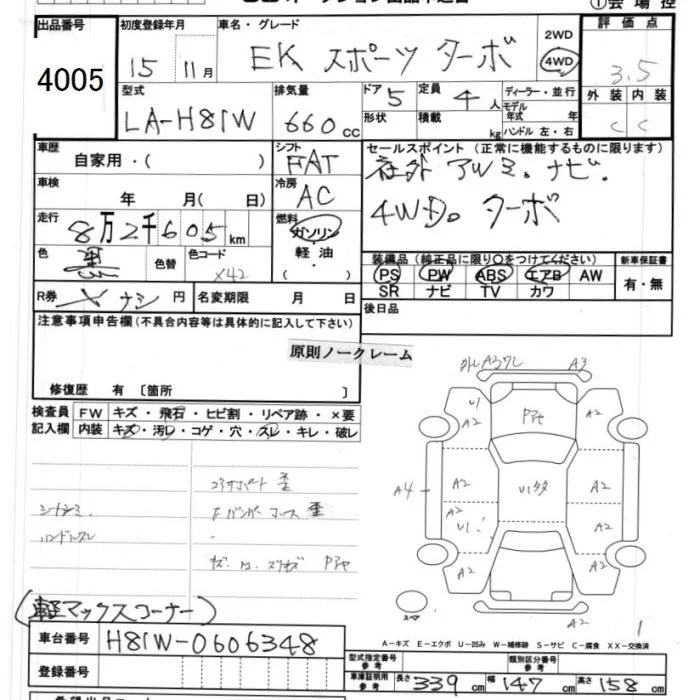 ①会場控
出品番号 初度登録年月 車名・グレード 2WD 評価点
4005 15 11月 EK スポーツ ターボ 4WD 3.5
型式 排気量 ドア 5 定員 4 人 ディーラー・並行 外装 内装
LA-H81W 660 cc 形状 積載 kg モデル年式 年 ハンドル 左・右 C C
車歴 自家用・( ) シフト FAT セールスポイント(正常に機能するものに限ります)
車検 年 月( 日) 冷房 AC 社外 AWミ。ナビ。
走行 8万2千605 km 燃料 ガソリン・軽油・( ) 4WD。ターボ
色 黒 色替 色コード X42 装備品(純正品に限り○をつけてください) 新車保証書
PS PW ABS エアB AW 有・無
R券 ナシ 円 名変期限 月 日 SR ナビ TV カワ
注意事項申告欄(不具合内容等は具体的に記入して下さい) 後日品
原則ノークレーム
修復歴 有 〔箇所 〕
検査員 FW キズ・飛石・ヒビ割・リペア跡・×要
記入欄 内装 キズ・汚レ・コゲ・穴・スレ・キレ・破レ
コアサポート 歪
シートシミ Fバンパーホース 歪
ハンドルスレ
A3
U1 A2 A2
A4 A2 U1 A2
A2 U1 A2
A2 A2
スペア A2 1
(軽マックスコーナー)
A-キズ E-エクボ U-凹み W-補修跡 S-サビ C-腐食 XX-交換済
車台番号 H81W-0606348
登録番号 型式指定番号 参考 類別区分番号 参考
車庫証明用 参考 長さ 339 cm 幅 147 cm 高さ 158 cm